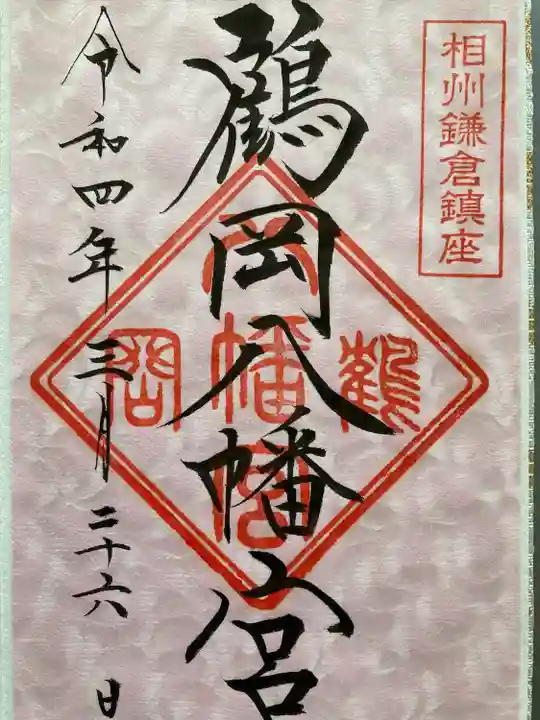 相州鎌倉鎮座
鶴岡八幡宮
鶴
八幡宮
岡
令和四年三月二十六日